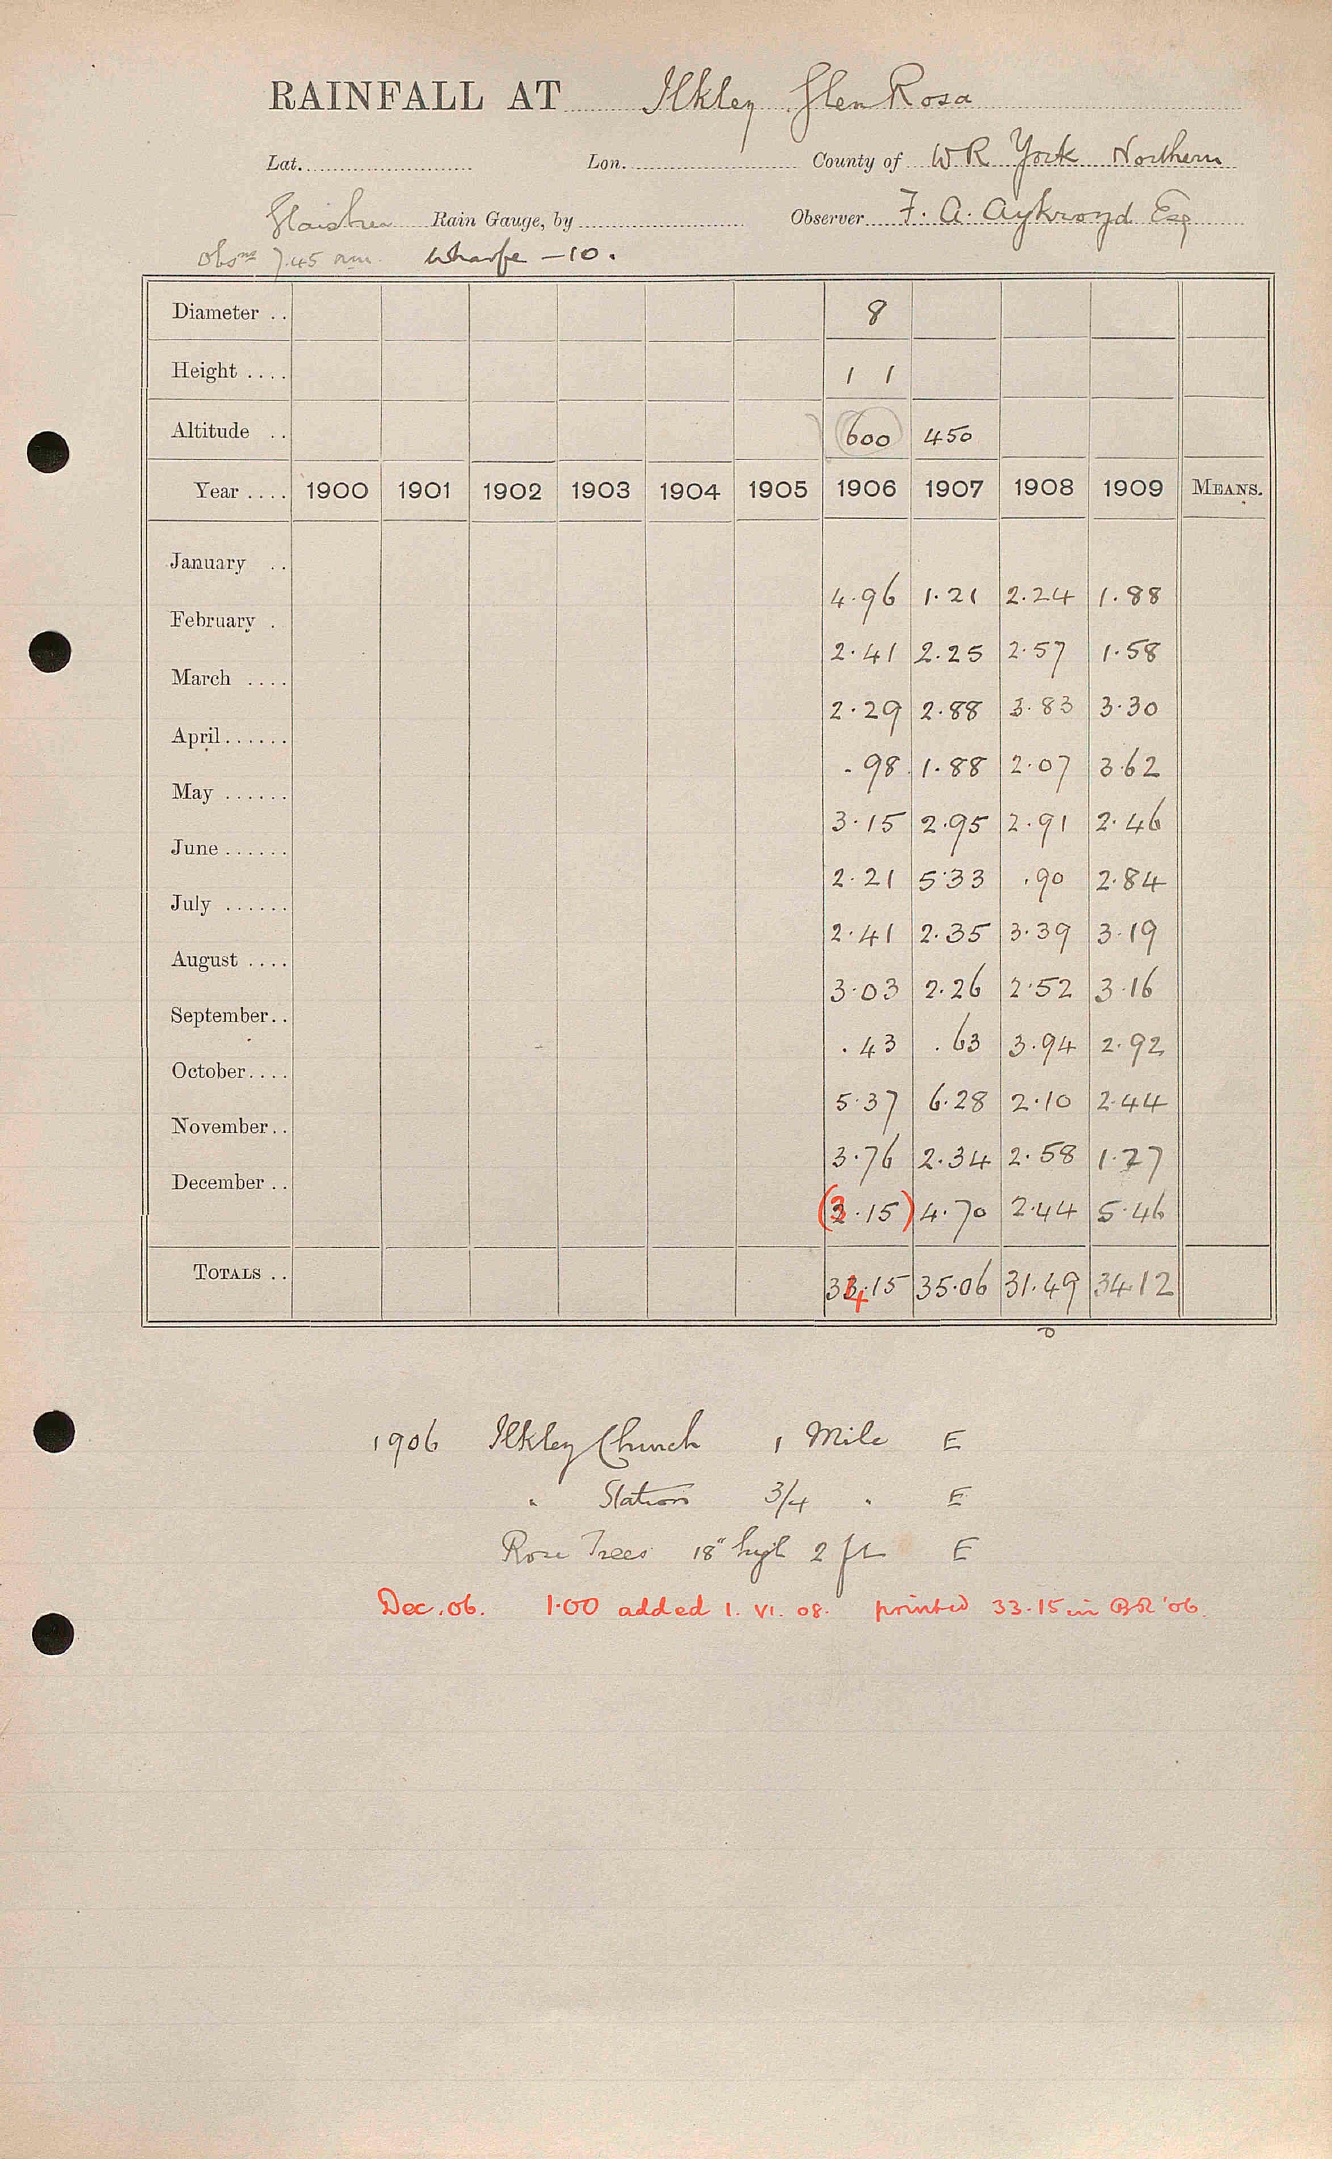 RAINFALL AT Ilkley Glen Rosa
Lat. Lon. County of W R York Northern
Glaisher Rain Gauge, by Observer F. A. Aykroyd Esq
Obsns 7.45 am. Wharfe – 10.
Diameter .. 8
Height .... 1 1
Altitude .. 600 450
Year .... 1900 1901 1902 1903 1904 1905 1906 1907 1908 1909 MEANS.
January .. 4.96 1.21 2.24 1.88
February . 2.41 2.25 2.57 1.58
March .... 2.29 2.88 3.83 3.30
April...... .98 1.88 2.07 3.62
May ...... 3.15 2.95 2.91 2.46
June ...... 2.21 5.33 .90 2.84
July ...... 2.41 2.35 3.39 3.19
August .... 3.03 2.26 2.52 3.16
September.. .43 .63 3.94 2.92
October.... 5.37 6.28 2.10 2.44
November.. 3.76 2.34 2.58 1.27
December .. (3.15) 4.70 2.44 5.46
TOTALS .. 34.15 35.06 31.49 34.12
1906 Ilkley Church 1 Mile E
" Station 3/4 " E
Rose Trees 18" high 2 ft E
Dec. 06. 1.00 added 1. VI. 08. printed 33.15 in BR '06.